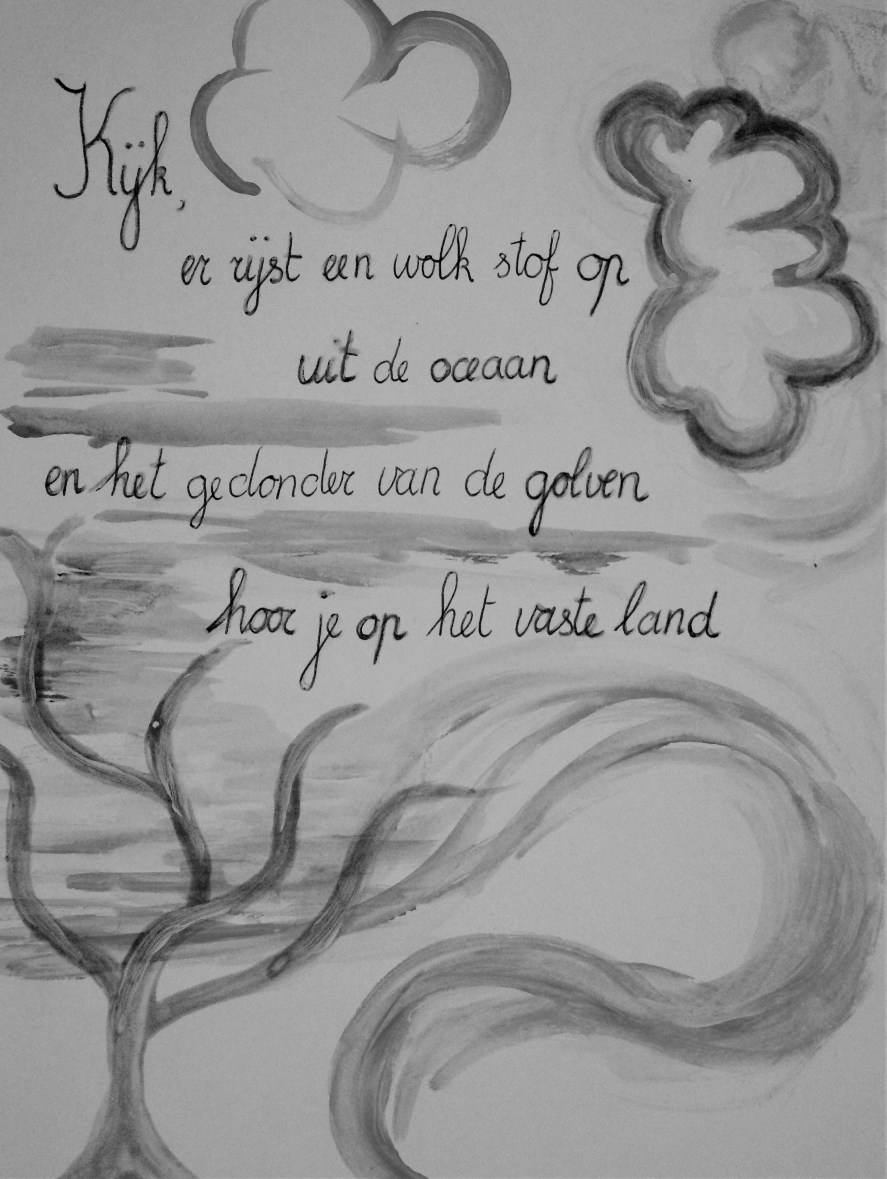 Kijk,
er rijst een wolk stof op
uit de oceaan
en het gedonder van de golven
hoor je op het vaste land